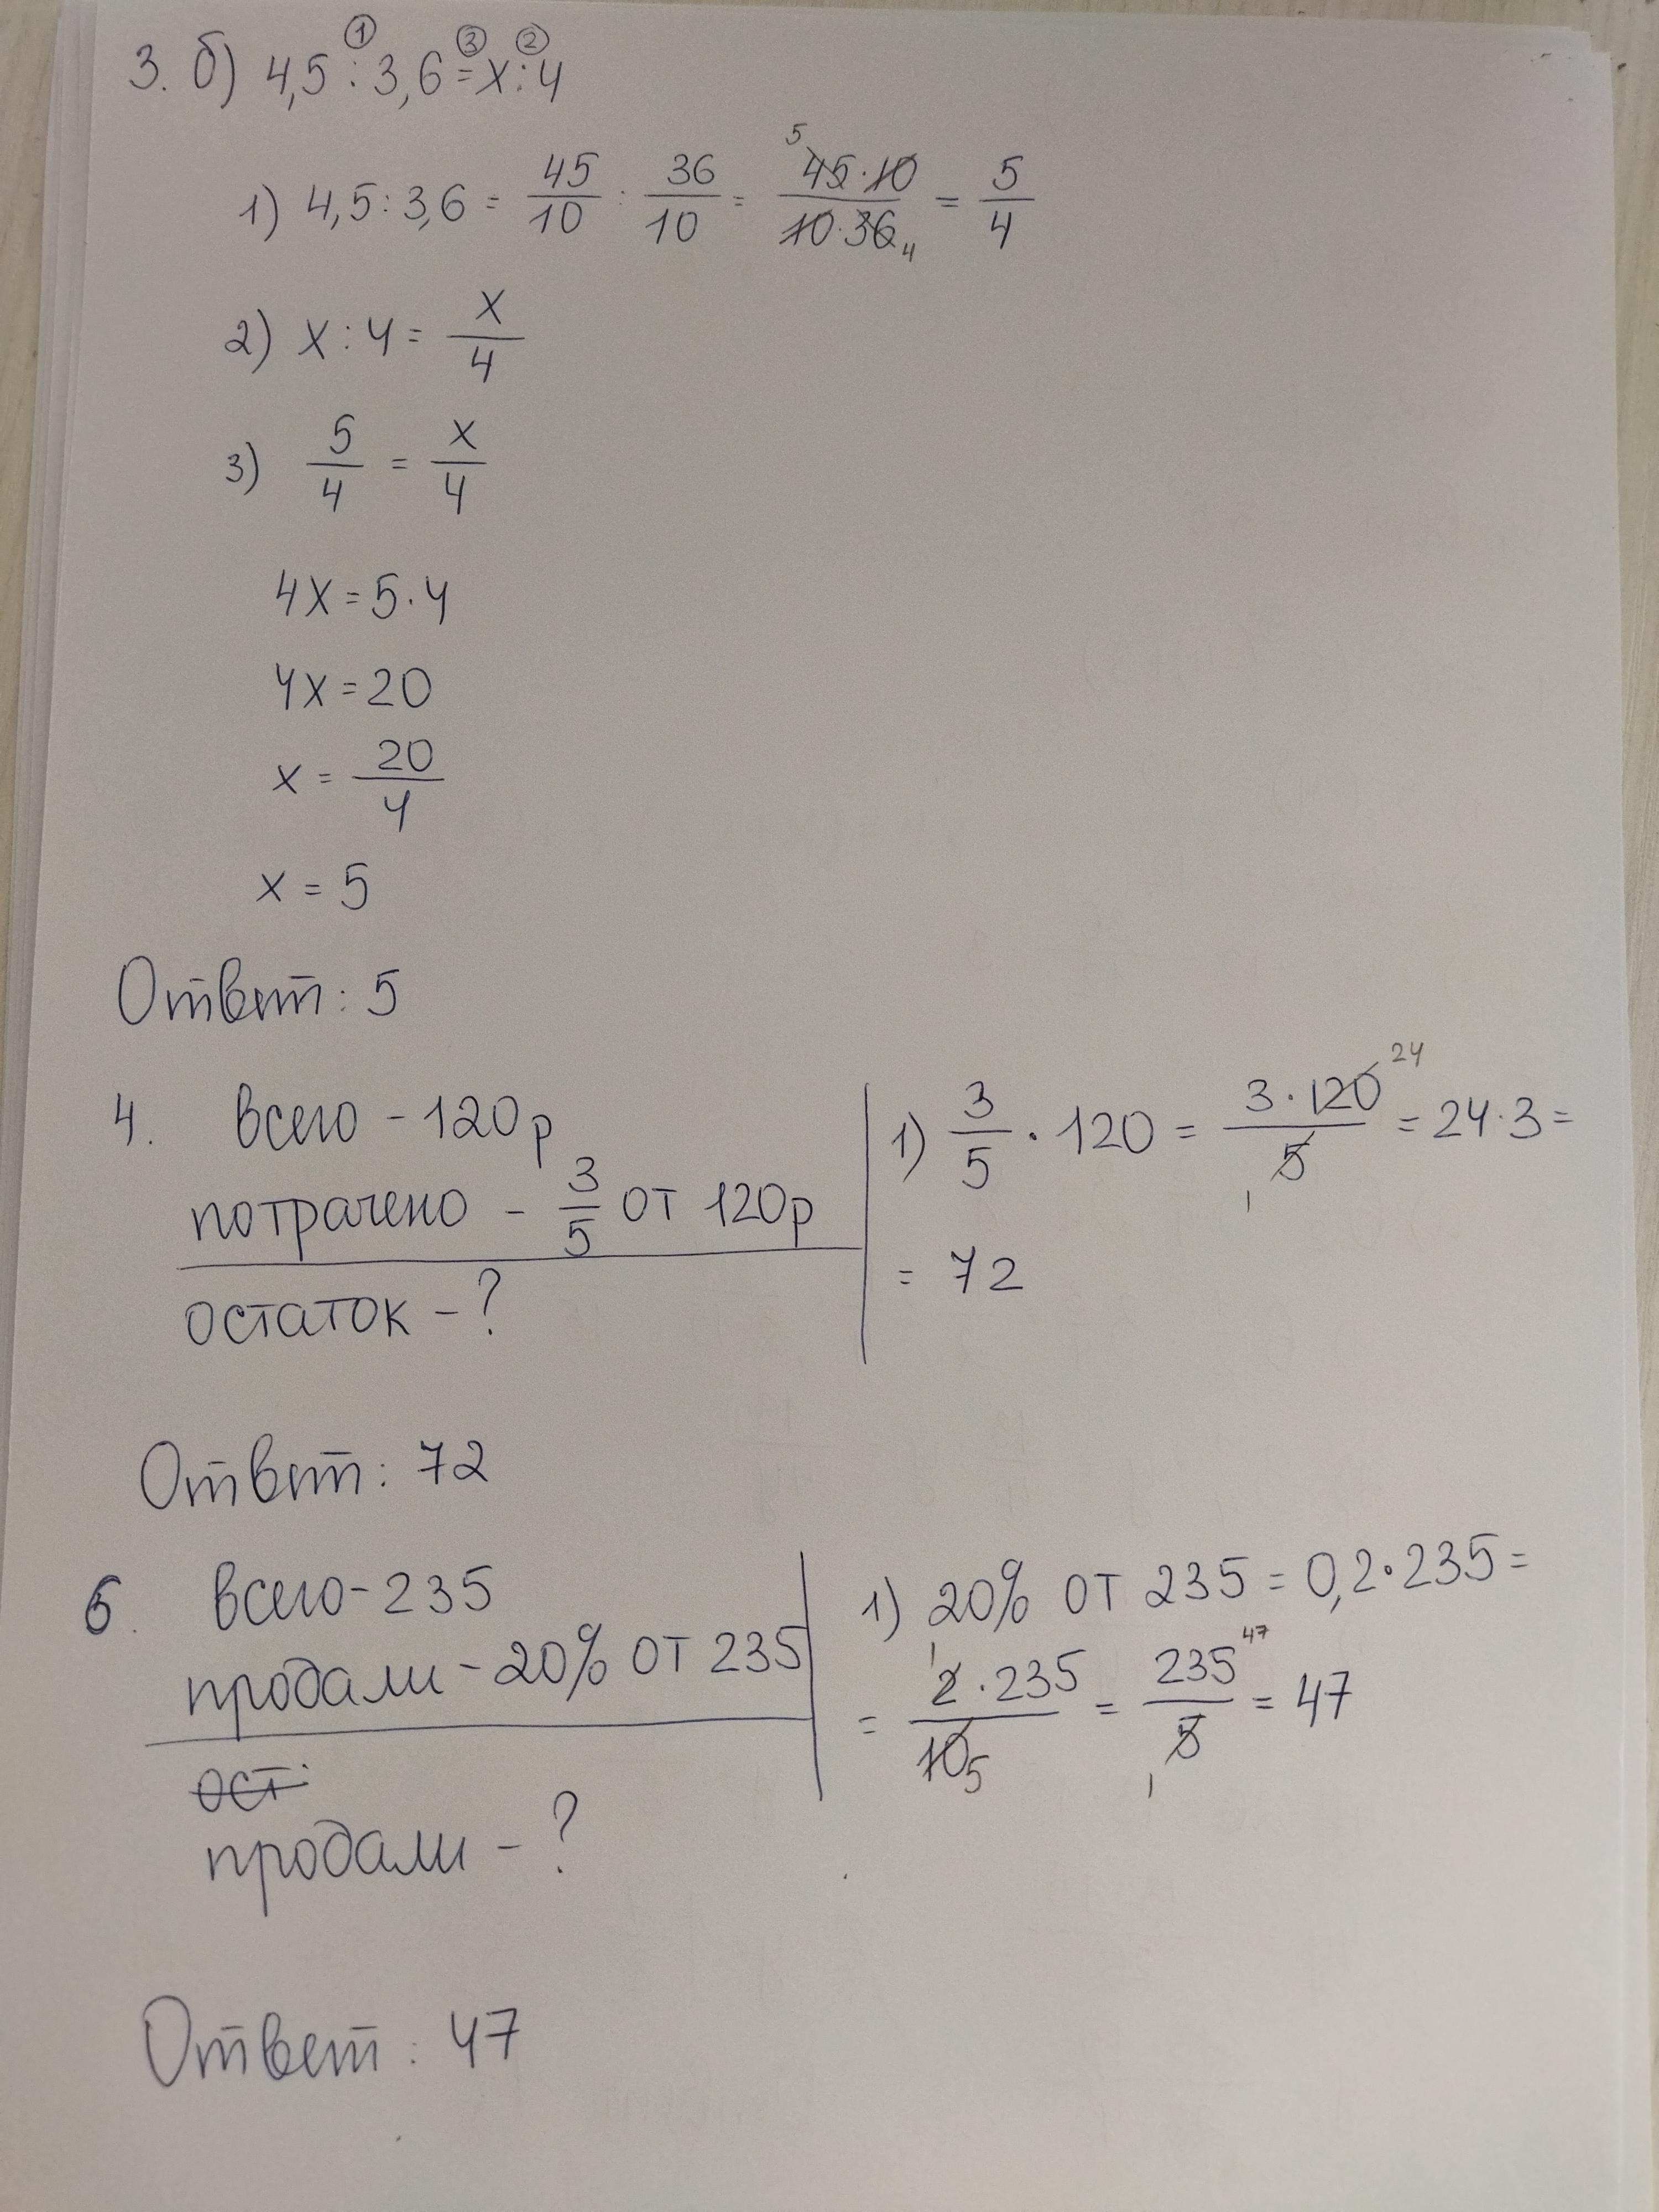 3. б) 4,5 : 3,6 = x : 4
① ③ ②
1) 4,5 : 3,6 = 45/10 : 36/10 = 45·10/10·36 = 5/4
5 4
2) x : 4 = x/4
3) 5/4 = x/4
4x = 5·4
4x = 20
x = 20/4
x = 5
Ответ: 5
4. всего - 120р
потрачено - 3/5 от 120р
остаток - ?
1) 3/5 · 120 = 3·120/5 = 24·3 =
24 1
= 72
Ответ: 72
6. всего - 235
продали - 20% от 235
ост.
продали - ?
1) 20% от 235 = 0,2·235 =
= 2·235/10 = 235/5 = 47
1 5 47 1
Ответ: 47